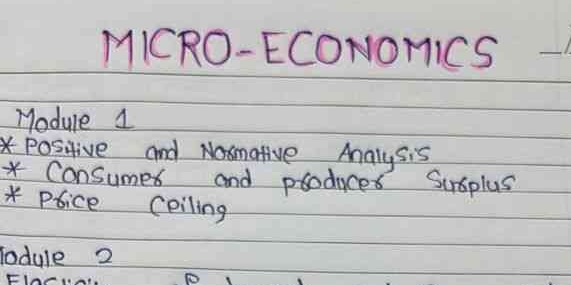 MICRO-ECONOMICS
Module 1
* Positive and Normative Analysis
* Consumer and producer Surplus
* Price Ceiling
Module 2